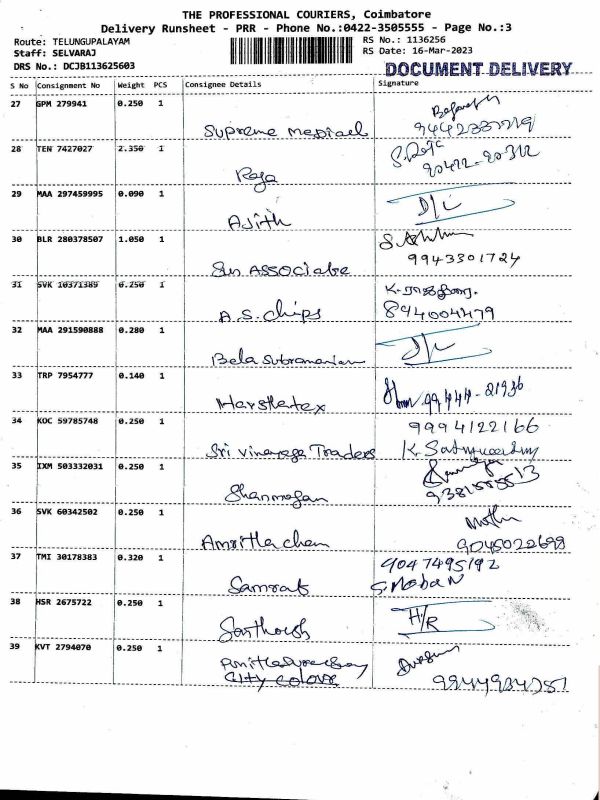 THE PROFESSIONAL COURIERS, Coimbatore
Delivery Runsheet - PRR - Phone No.:0422-3505555 - Page No.:3
Route: TELUNGUPALAYAM RS No.: 1136256
Staff: SELVARAJ RS Date: 16-Mar-2023
DRS No.: DCJB113625603 DOCUMENT DELIVERY
S No Consignment No Weight PCS Consignee Details Signature
27 GPM 279941 0.250 1
Supreme Medical
28 TEN 7427027 2.350 1
Raja 20422-20312
29 MAA 297459995 0.090 1 D/L
Ajith
30 BLR 280378507 1.050 1
Sun Associate 9943301724
31 SVK 10371389 0.250 1
A.S. chips 894004479
32 MAA 291590888 0.280 1 D/L
Bala Subramaniam
33 TRP 7954777 0.140 1
99444-21936
34 KOC 59785748 0.250 1 9994122166
Sri vinayaga Traders
35 IXM 503332031 0.250 1
Shanmugan
36 SVK 60342502 0.250 1
Amritha chem 9045022699
37 TMI 30178383 0.320 1 9047495192
Samrat S. Mohan
38 HSR 2675722 0.250 1 H/R
Santhosh
39 KVT 2794070 0.250 1
City colour